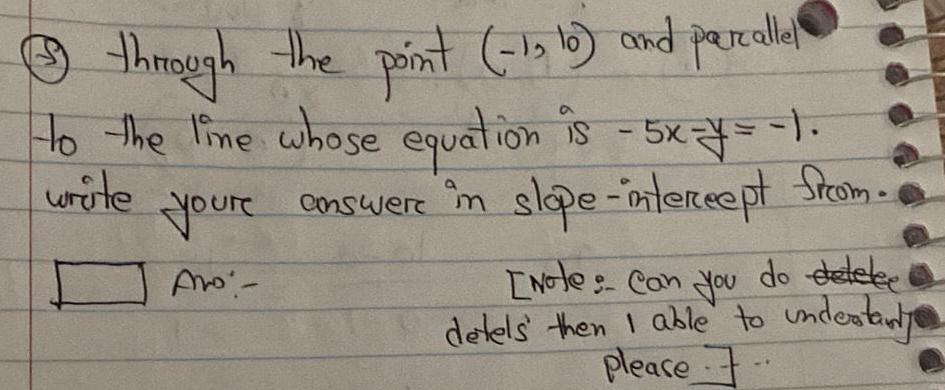 ⑤ through the point (-1, 10) and parallel
to the line whose equation is -5x-y = -1.
write your answer in slope-intercept from.
Ans:-
[Note:- Can you do delete
detels then I able to understand
please.] ..